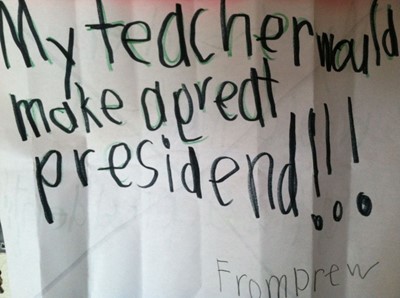 My teacher would
make a great
presidend!!!
From Drew